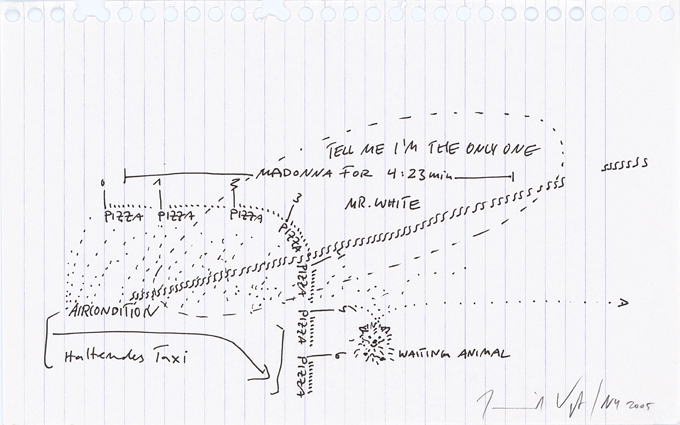 TELL ME I'M THE ONLY ONE
MADONNA FOR 4:23min
MR. WHITE
0 1 3
PIZZA PIZZA PIZZA PIZZA
PIZZA
PIZZA
PIZZA
6
AIRCONDITION
Haltendes Taxi
WAITING ANIMAL
/NY 2005